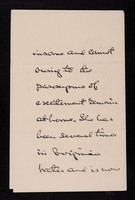 insane and cannot
owing to the
paroxysms of
excitement remain
at home. She has
been several times
in
and is now